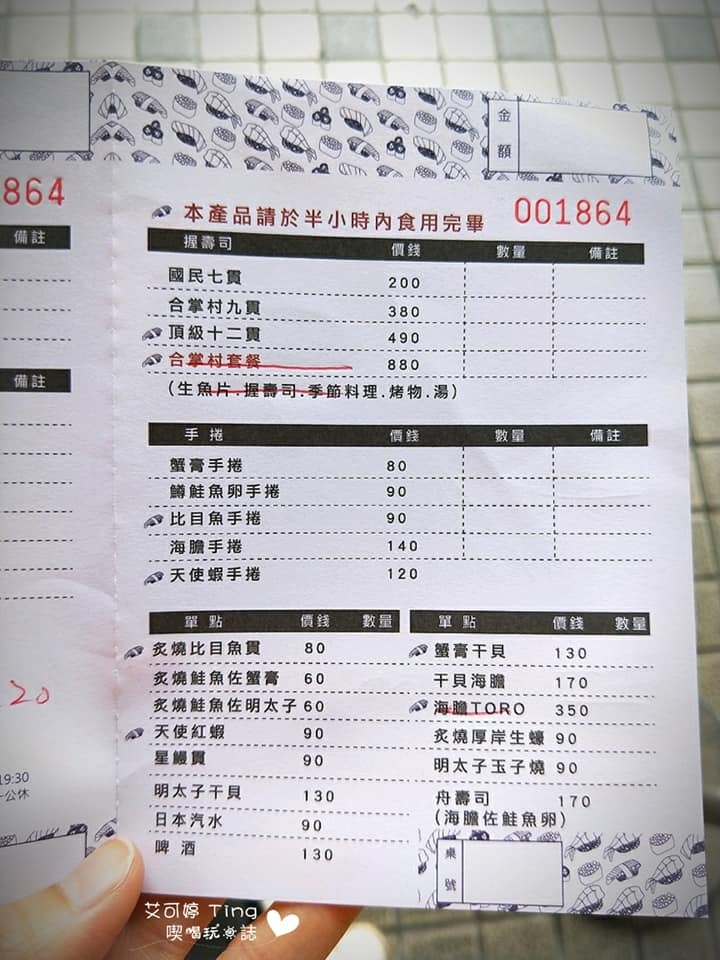 金額
864
001864
本產品請於半小時內食用完畢
備註
握壽司 價錢 數量 備註
國民七貫 200
合掌村九貫 380
頂級十二貫 490
合掌村套餐 880
(生魚片.握壽司.季節料理.烤物.湯)
備註
手捲 價錢 數量 備註
蟹膏手捲 80
鱒鮭魚卵手捲 90
比目魚手捲 90
海膽手捲 140
天使蝦手捲 120
單點 價錢 數量
炙燒比目魚貫 80
炙燒鮭魚佐蟹膏 60
炙燒鮭魚佐明太子 60
天使紅蝦 90
星鰻貫 90
明太子干貝 130
日本汽水 90
啤酒 130
單點 價錢 數量
蟹膏干貝 130
干貝海膽 170
海膽TORO 350
炙燒厚岸生蠔 90
明太子玉子燒 90
舟壽司 170
(海膽佐鮭魚卵)
20
19:30
公休
桌號
艾可婷 Ting
喫喝玩樂誌